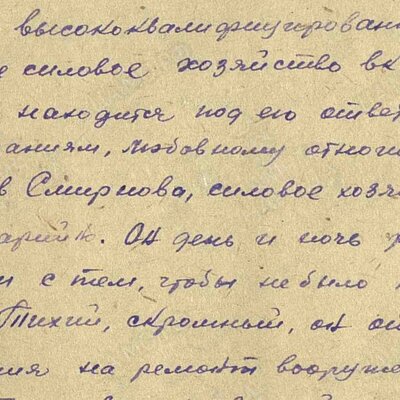 высококвалифицирован
е силовое хозяйство вк
находится под его ответ
аниям, любовному отнош
в Смирнова, силовое хозя
арийн. Он день и ночь
и с тем, чтобы не было
Тихий, скромный, он
ния на ремонт вооруже